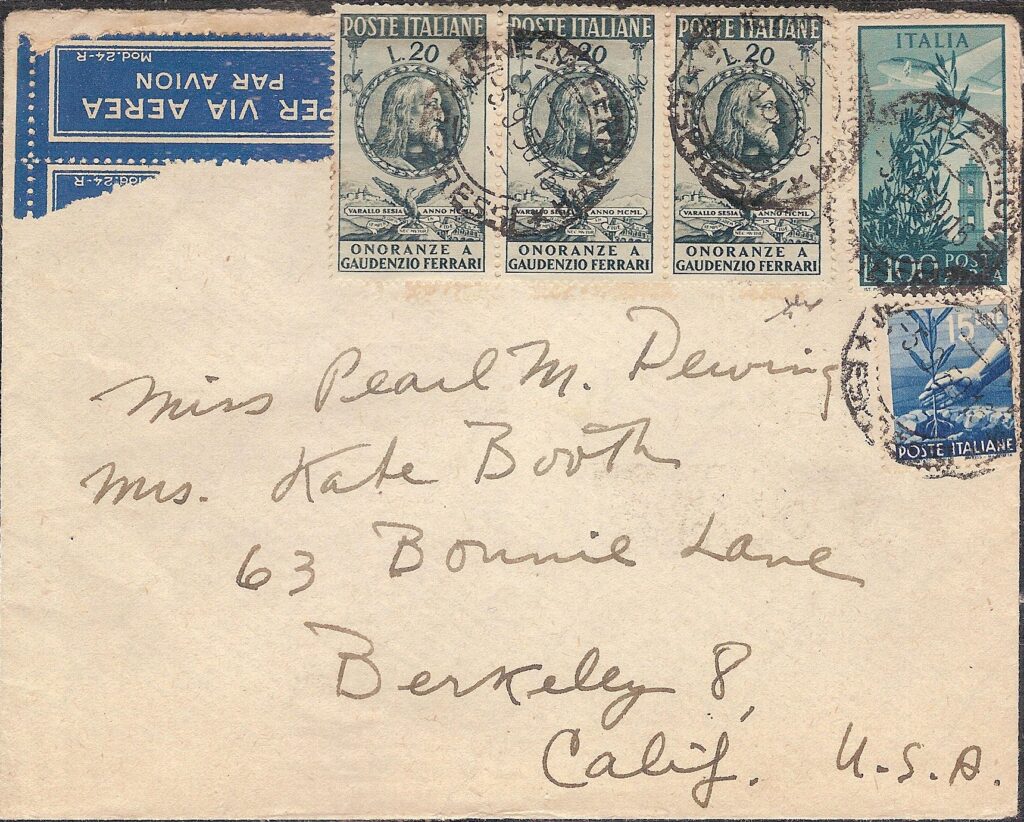 PER VIA AEREA
PAR AVION
Mod.24-R
Mod.24-R
POSTE ITALIANE
L.20
VARALLO SESIA ANNO MCML
ONORANZE A
GAUDENZIO FERRARI
POSTE ITALIANE
20
VARALLO SESIA ANNO MCML
ONORANZE A
GAUDENZIO FERRARI
POSTE ITALIANE
L.20
VARALLO SESIA ANNO MCML
ONORANZE A
GAUDENZIO FERRARI
ITALIA
L.100 POSTA
AEREA
15 LIRE
POSTE ITALIANE
Miss Pearl M. Dewing
Mrs. Kate Booth
63 Bonnie Lane
Berkeley 8,
Calif. U.S.A.